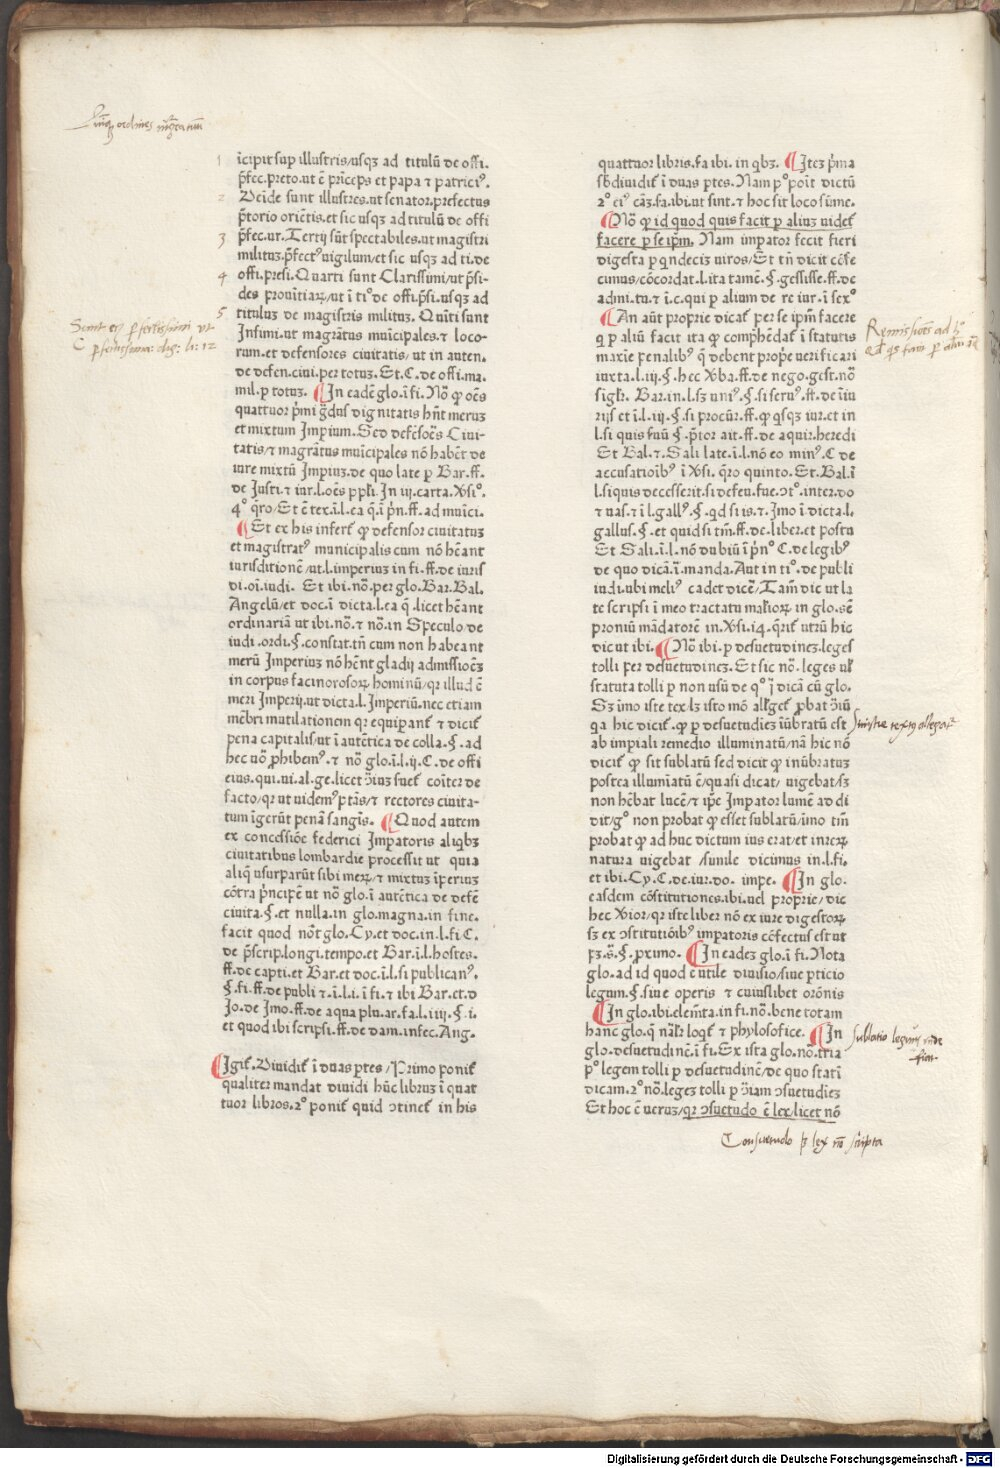 Quinq ordines mgratuū
1 īcipit sup illustris/usqȝ ad titulū de offi.
p̄fec.preto.ut ē prīceps et papa ⁊ patriciꝰ.
2 Deīde sunt illustres.ut senator.prefectus
p̄torio oriētis.et sic usqȝ ad titulū de offi
3 p̄fec.ur. Tertij sūt spectabiles.ut magistri
milituȝ.p̄fectꝰ vigilum/et sic usqȝ ad ti.de
4 offi.presi. Quarti sunt Clarissimi/ut p̄si-
des prouītiaꝝ/ut ī tiº de offi.p̄si.usqȝ ad
5 tituluȝ de magistris milituȝ. Quīti sunt
Infimi.ut magrātus muīcipales.⁊ loco-
rum.et defensores ciuitatis/ut in auten.
de defen.ciui.per totuȝ. Et.C.de offi.ma.
mil.p totuȝ. ¶In eadē glo.ī fi. Nō ꝙ oēs
quattuor p̄mi g̃dus dignitatis hn̄t meruȝ
et mixtum Imperium. Sed defēsoēs Ciui-
tatis/⁊ magrātus muīcipales nō habēt de
iure mixtū Impiuȝ.de quo late p Bar.ff.
de Justi.⁊ iur.l.oēs ppl̓i. In iij.carta.Ꝟsiº.
4º q̄ro/Et ē tex.ī.l.ea q̄.ī p̄n.ff.ad muīci.
¶Et ex his infert̓ ꝙ defensor ciuitatuȝ
et magistratꝰ municipalis cum nō hēant
iurisditionē/ut.l.imperius in fi.ff.de iuris
di.oī.iudi. Et ibi.nō.per glo.Bar.Bal.
Angelū/et doc.ī dicta.l.ea q̄.licet hēant
ordinariā ut ibi.nō.⁊ nō.in Speculo/de
iudi.ordi.§.constat.tn̄ cum non habeant
merū Imperiuȝ nō hēnt gladij admissioēȝ
in corpus facinorosoꝝ hominū/qꝛ illud ē
meri Imperij.ut dicta.l.Imperiū.nec etiam
mēbri mutilationem qꝛ equiparīt̓ ⁊ dicit̓
pena capitalis/ut ī autētica de colla.§.ad
hec uō ꝓhibemꝰ.⁊ nō glo.ī.l.ij.C.de offi
eius.qui.ui.al.ge.licet ꝯ̄ius fuet̓ coīter de
facto/qꝛ ut uidemꝰ ptās/⁊ rectores ciuita-
tum īgerūt penā sangīs. ¶Quod autem
ex concessiōe federici Imparoris aliqbȝ
ciuitatibus lombardie processit ut quia
aliq̄ usurparūt sibi meꝝ/⁊ mixtuȝ īperiuȝ
cōtra p̄ncipē ut nō glo.ī autētica de defē
ciuita.§.et nulla.in glo.magna.in fine.
facit quod nōt glo.Cy.et doc.in.l.fi C.
de p̄scrip.longi.tempo.et Bar.ī.l.hostes.
ff.de capti.et Bar.et doc.ī.l.si publicanꝰ.
§.fi.ff.de publi ⁊.ī.l.i.ī fi.⁊ ibi Bar.et.d
Jo.de Jmo.ff.de aqua plu.ar.fa.l.iiij.§.i.
et quod ibi scripsi.ff.de dam.infec.Ang.
¶Igit̓.Diuidit̓ ī duas ptes/Primo ponit̓
qualiter mandat diuidi hūc libruȝ ī quat
tuor libros.2º ponit̓ quid ꝯtinet̓ in his
Sunt eȝ perfectissimi ut
C perfectissima: dig: li: 12
quattuor libris.fa ibi. in qbȝ. ¶Iteȝ p̄ma
sbdiuidit̓ ī duas ptes. Nam pº poīt dictū
2º eiꝰ cāȝ.fa.ibi.ut sint.⁊ hoc sit loco sūme.
¶Nō ꝙ id quod quis facit p aliuȝ uidet̓
facere p se ip̄m. Nam impator fecit fieri
digesta p qndeciȝ uiros/Et tn̄ dicit cōfe
cimus/cōcordat.l.ita tamē.§.gessisse.ff.de
admi.tu.⁊ ī.c.qui p alium de re iur.ī sexº
¶An aūt proprie dicat̓ per se ip̄m facere
q̄ p aliū facit ita ꝙ compḣēdat̓ ī statutis
maxīe penalibꝰ q̄ debent prop̄e uerificari
iuxta.l.iij.§.hec Ꝟba.ff.de nego.gest.nō
sigl̓r. Bar.in.l.sȝ uniꝰ.§.si seruꝰ.ff.de īiu
rijs et ī.l.iij.§.si procur̄.ff.ꝙ qsqȝ iur.et in
l.si quis fuū §.p̄tor ait.ff.de aquir.heredi
Et Bal.⁊ Sali late.ī.l.nō eo minꝰ.C de
accusatioībꝰ ī Ꝟsi.q̄ro quinto.Et.Bal.ī
l.siquis decesserit.si defen.fue.ꝯtº.inter.do
⁊ uas.⁊ ī.l.gallꝰ.§.qd si is.⁊.Imo ī dicta.l.
gallus.§.et quid si tm̄.ff.de.liber.et postu
Et Sali.ī.l.nō dubiū ī p̄nº C.de legibꝰ
de quo dicā.ī.manda. Aut in tiº.de publi
iudi.ubi meliꝰ cadet dicē/Tam̄ dic ut la
te scripsi ī meo tractatu mal̓ioꝝ in glo.sē
proniū mādatorē in.Ꝟsi.14.q̄rit̓ utrū hic
dic ut ibi. ¶Nō ibi.p desuetudineȝ.leges
tolli per desuetudineȝ.Et sic nō.leges ul̓
statuta tolli p non usū de qº ī dicā cū glo.
Sȝ imo iste tex.lȝ isto mō al̓leget̓ ꝓbat ꝯ̄iū
q̄a hic dicit̓.ꝙ p desuetudīeȝ īūbratū est
ab impiali remedio illuminatū/nā hic nō
dicit̓ ꝙ sit sublatū sed dicit̓ ꝙ inūbratuȝ
postea illumīatū ē/quasi dicat/ uigebat/sȝ
non hēbat lucē/⁊ ip̄e Impator lumē ad di
dit/gº non probat ꝙ esset sublatū/imo tm̄
probat ꝙ ad huc dictum ius erat/et in reꝝ
natura uigebat /simile dicimus in.l.fi.
et ibi.Cy.C.de.iur.do. impe. ¶In glo.
easdem cōstitutiones.ibi.uel proprie/dic
hec Ꝟior/qꝛ iste liber nō ex iure digestoꝝ
sȝ ex ꝯstitutiōibꝰ impatoris cōfectus est ut
pȝ.s̄.§.ꝓximo. ¶In eadeȝ glo.ī fi.Nota
glo.ad id quod ē utile diuisio/siue pticio
legum.§.siue operis ⁊ cuiuslibet orōnis
¶In glo.ibi.elemēta.in fi.nō.bene totam
hanc glo.q̄ nāl̓r loqt̓ ⁊ phylosofice. ¶In
glo.desuetudinē.ī fi.Ex ista glo.nō.tria
pº legem tolli p desuetudinē/de quo statī
dicam.2º nō.legeȝ tolli p ꝯ̄iam ꝯsuetudīeȝ
Et hoc ē ueruȝ/qꝛ ꝯsuetudo ē lex/licet nō
Remissiōes ad l.
Qd qs facit p aliū
sublatio legum
fiat.
Consuetudo ȝ lex nō scripta